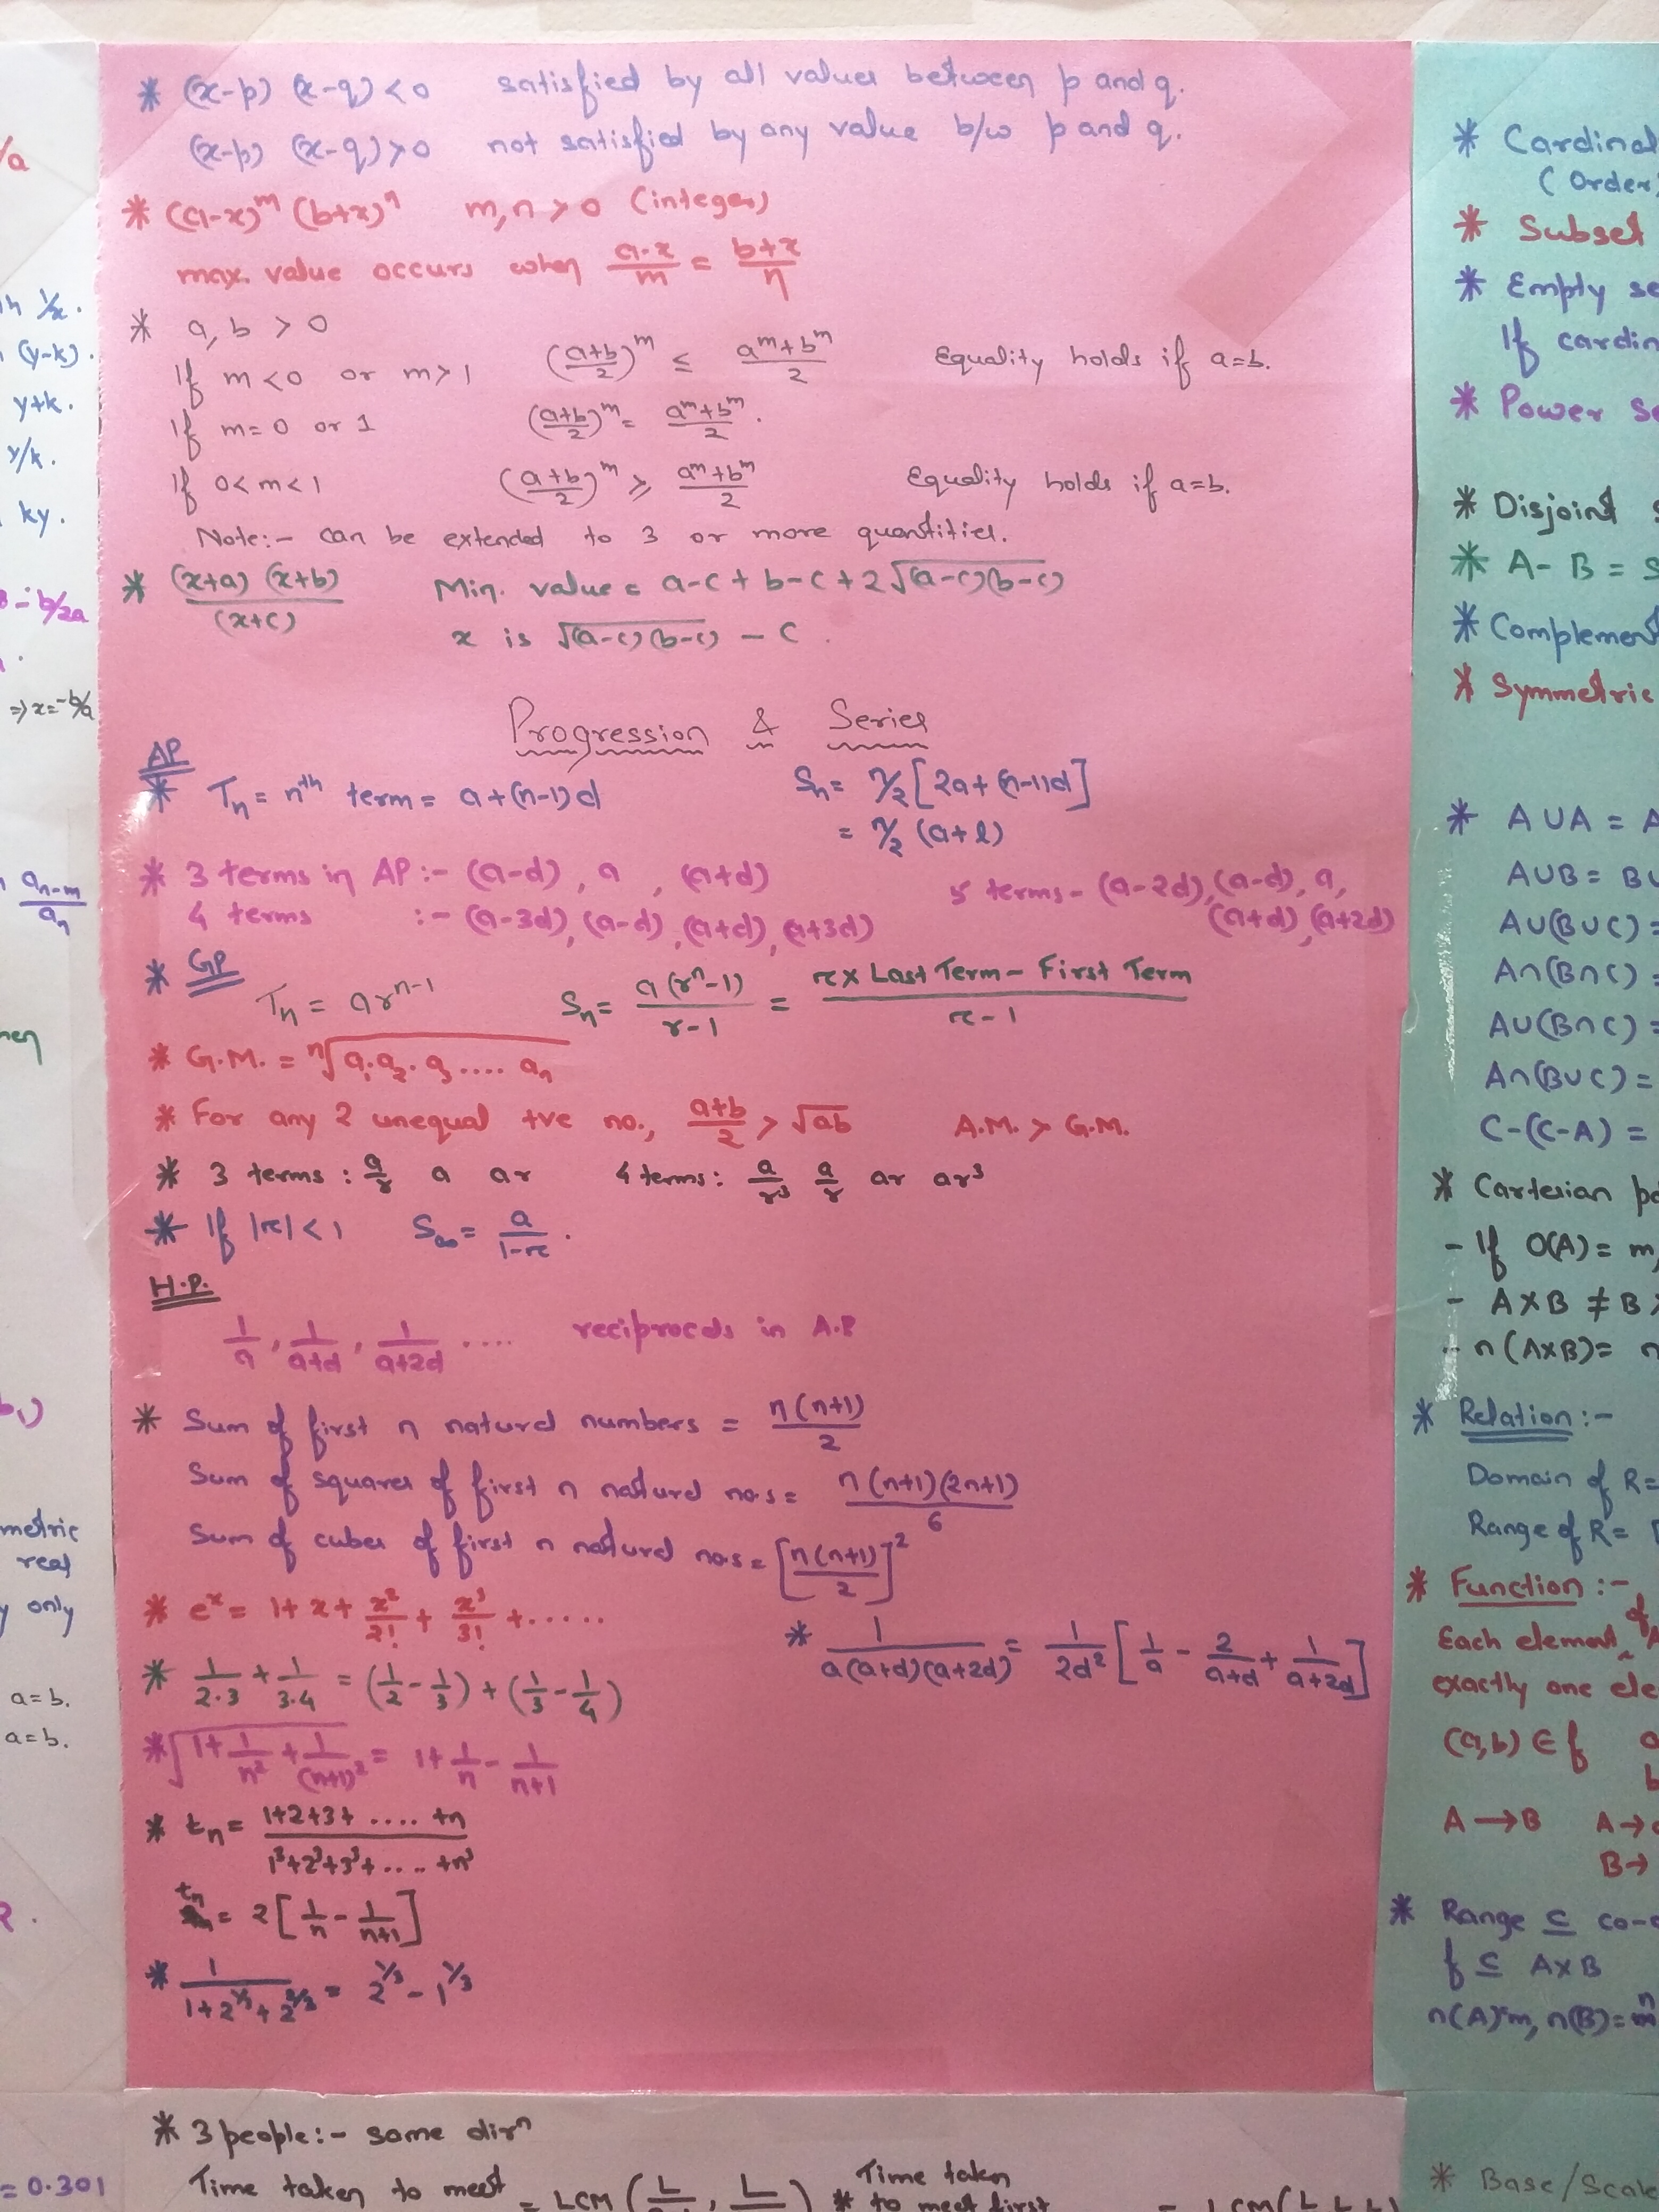 * (x-p) (x-q) < 0 satisfied by all values between p and q.
(x-p) (x-q) > 0 not satisfied by any value b/w p and q.
* (a-x)^m (b+x)^n m, n > 0 (integer)
max. value occurs when (a-x)/m = (b+x)/n
* a, b > 0
If m < 0 or m > 1 ((a+b)/2)^m ≤ (a^m + b^m)/2 Equality holds if a=b.
If m = 0 or 1 ((a+b)/2)^m = (a^m + b^m)/2.
If 0 < m < 1 ((a+b)/2)^m ≥ (a^m + b^m)/2 Equality holds if a=b.
Note:- can be extended to 3 or more quantities.
* (x+a) (x+b)/(x+c) Min. value = a-c + b-c + 2√(a-c)(b-c)
x is √(a-c)(b-c) - c.
Progression & Series
AP
* Tn = nth term = a+(n-1)d Sn = n/2 [2a+(n-1)d]
= n/2 (a+l)
* 3 terms in AP :- (a-d), a, (a+d) 5 terms - (a-2d), (a-d), a,
4 terms :- (a-3d), (a-d), (a+d), (a+3d) (a+d), (a+2d)
* GP
Tn = ar^(n-1) Sn = a(r^n-1)/(r-1) = (r x Last Term - First Term)/(r-1)
* G.M. = ⁿ√a₁.a₂.a₃.... aₙ
* For any 2 unequal +ve no., (a+b)/2 > √ab A.M. > G.M.
* 3 terms : a/r a ar 4 terms : a/r³ a/r ar ar³
* If |r| < 1 S∞ = a/(1-r).
H.P.
1/a, 1/(a+d), 1/(a+2d) .... reciprocals in A.P
* Sum of first n natural numbers = n(n+1)/2
Sum of squares of first n natural nos = n(n+1)(2n+1)/6
Sum of cubes of first n natural nos = [n(n+1)/2]²
* e^x = 1 + x + x²/2! + x³/3! + .....
* 1/(a(a+d)(a+2d)) = 1/2d² [1/a - 2/(a+d) + 1/(a+2d)]
* 1/2.3 + 1/3.4 = (1/2 - 1/3) + (1/3 - 1/4)
* √(1 + 1/n² + 1/(n+1)²) = 1 + 1/n - 1/(n+1)
* tn = (1+2+3+ .... +n)/(1³+2³+3³+ .... +n³)
tn = 2 [1/n - 1/(n+1)]
* 1/(1+2^(1/3)+2^(2/3)) = 2^(1/3) - 1^(1/3)
* 3 people:- same dirⁿ
Time taken to meet = LCM (L
* Time taken
to meet first
/a
1/x.
(y-k).
y+k.
y/k.
ky.
-b/2a
⇒ x = -b/a
a_(n-m)/a_n
metric
real
only
a=b.
a=b.
= 0.301
* Cardinal
(Order)
* Subset
* Empty se
If cardin
* Power se
* Disjoint
* A - B =
* Complement
* Symmetric
* A∪A = A
A∪B = B∪
A∪(B∪C) =
A∩(B∩C) =
A∪(B∩C) =
A∩(B∪C) =
C-(C-A) =
* Cartesian
- If O(A) = m,
- A×B ≠ B×
- n(A×B) =
* Relation :-
Domain of R =
Range of R =
* Function :-
Each element of A
exactly one ele
(a,b) ∈ f
A → B A →
B →
* Range ⊆ co-
f ⊆ A×B
n(A)=m, n(B)=n
* Base/Scale